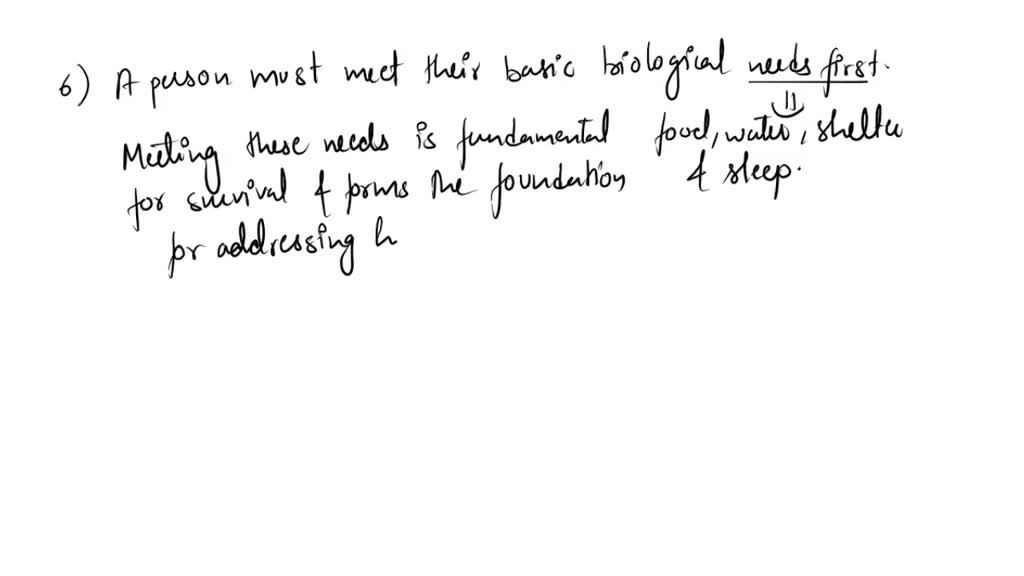 6) A person must meet their basic biological needs first.
Meeting these needs is fundamental food, water, shelter
for survival & forms the foundation & sleep.
for addressing h